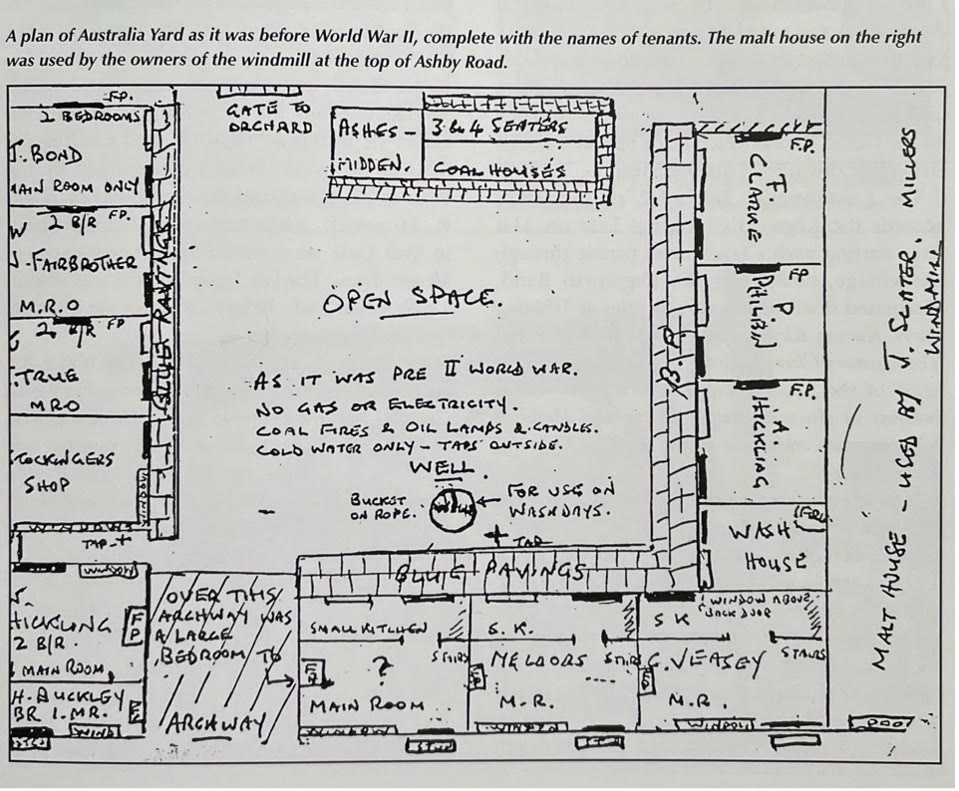 A plan of Australia Yard as it was before World War II, complete with the names of tenants. The malt house on the right
was used by the owners of the windmill at the top of Ashby Road.
F.P.
2 BEDROOMS
J. BOND
MAIN ROOM ONLY
W 2 B/R FP.
J. FAIRBROTHER
M.R.O
2 B/R FP
TRUE
MRO
STOCKINGERS
SHOP
WINDOW
WINDOWS
TAP
BLUE PAVINGS
GATE TO
ORCHARD
ASHES -
MIDDEN.
3 & 4 SEATERS
COAL HOUSES
OPEN SPACE.
AS IT WAS PRE II WORLD WAR.
NO GAS OR ELECTRICITY.
COAL FIRES & OIL LAMPS & CANDLES.
COLD WATER ONLY - TAPS OUTSIDE.
WELL
BUCKET
ON ROPE.
FOR USE ON
WASHDAYS.
TAP
BLUE PAVINGS
B.P.
F.P.
F.
CLARKE
FP
P
PHILBIN
F.P.
A.
HICKLING
WASH
HOUSE
MALT HOUSE - USED BY J. SLATER. MILLERS
WINDMILL
WINDOW
J.
HICKLING
2 B/R.
MAIN ROOM
FP
H. BUCKLEY
BR 1. MR.
WIND
OVER THIS
ARCHWAY WAS
A LARGE
BEDROOM TO
ARCHWAY
SMALL KITCHEN
STAIRS
FP
?
MAIN ROOM
WINDOW
STEP
S. K.
STAIRS
M.R.
WINDOW
STEP
WINDOW ABOVE
BACK DOOR
S K
STAIRS
C. VEASEY
M.R.
WINDOW
DOOR